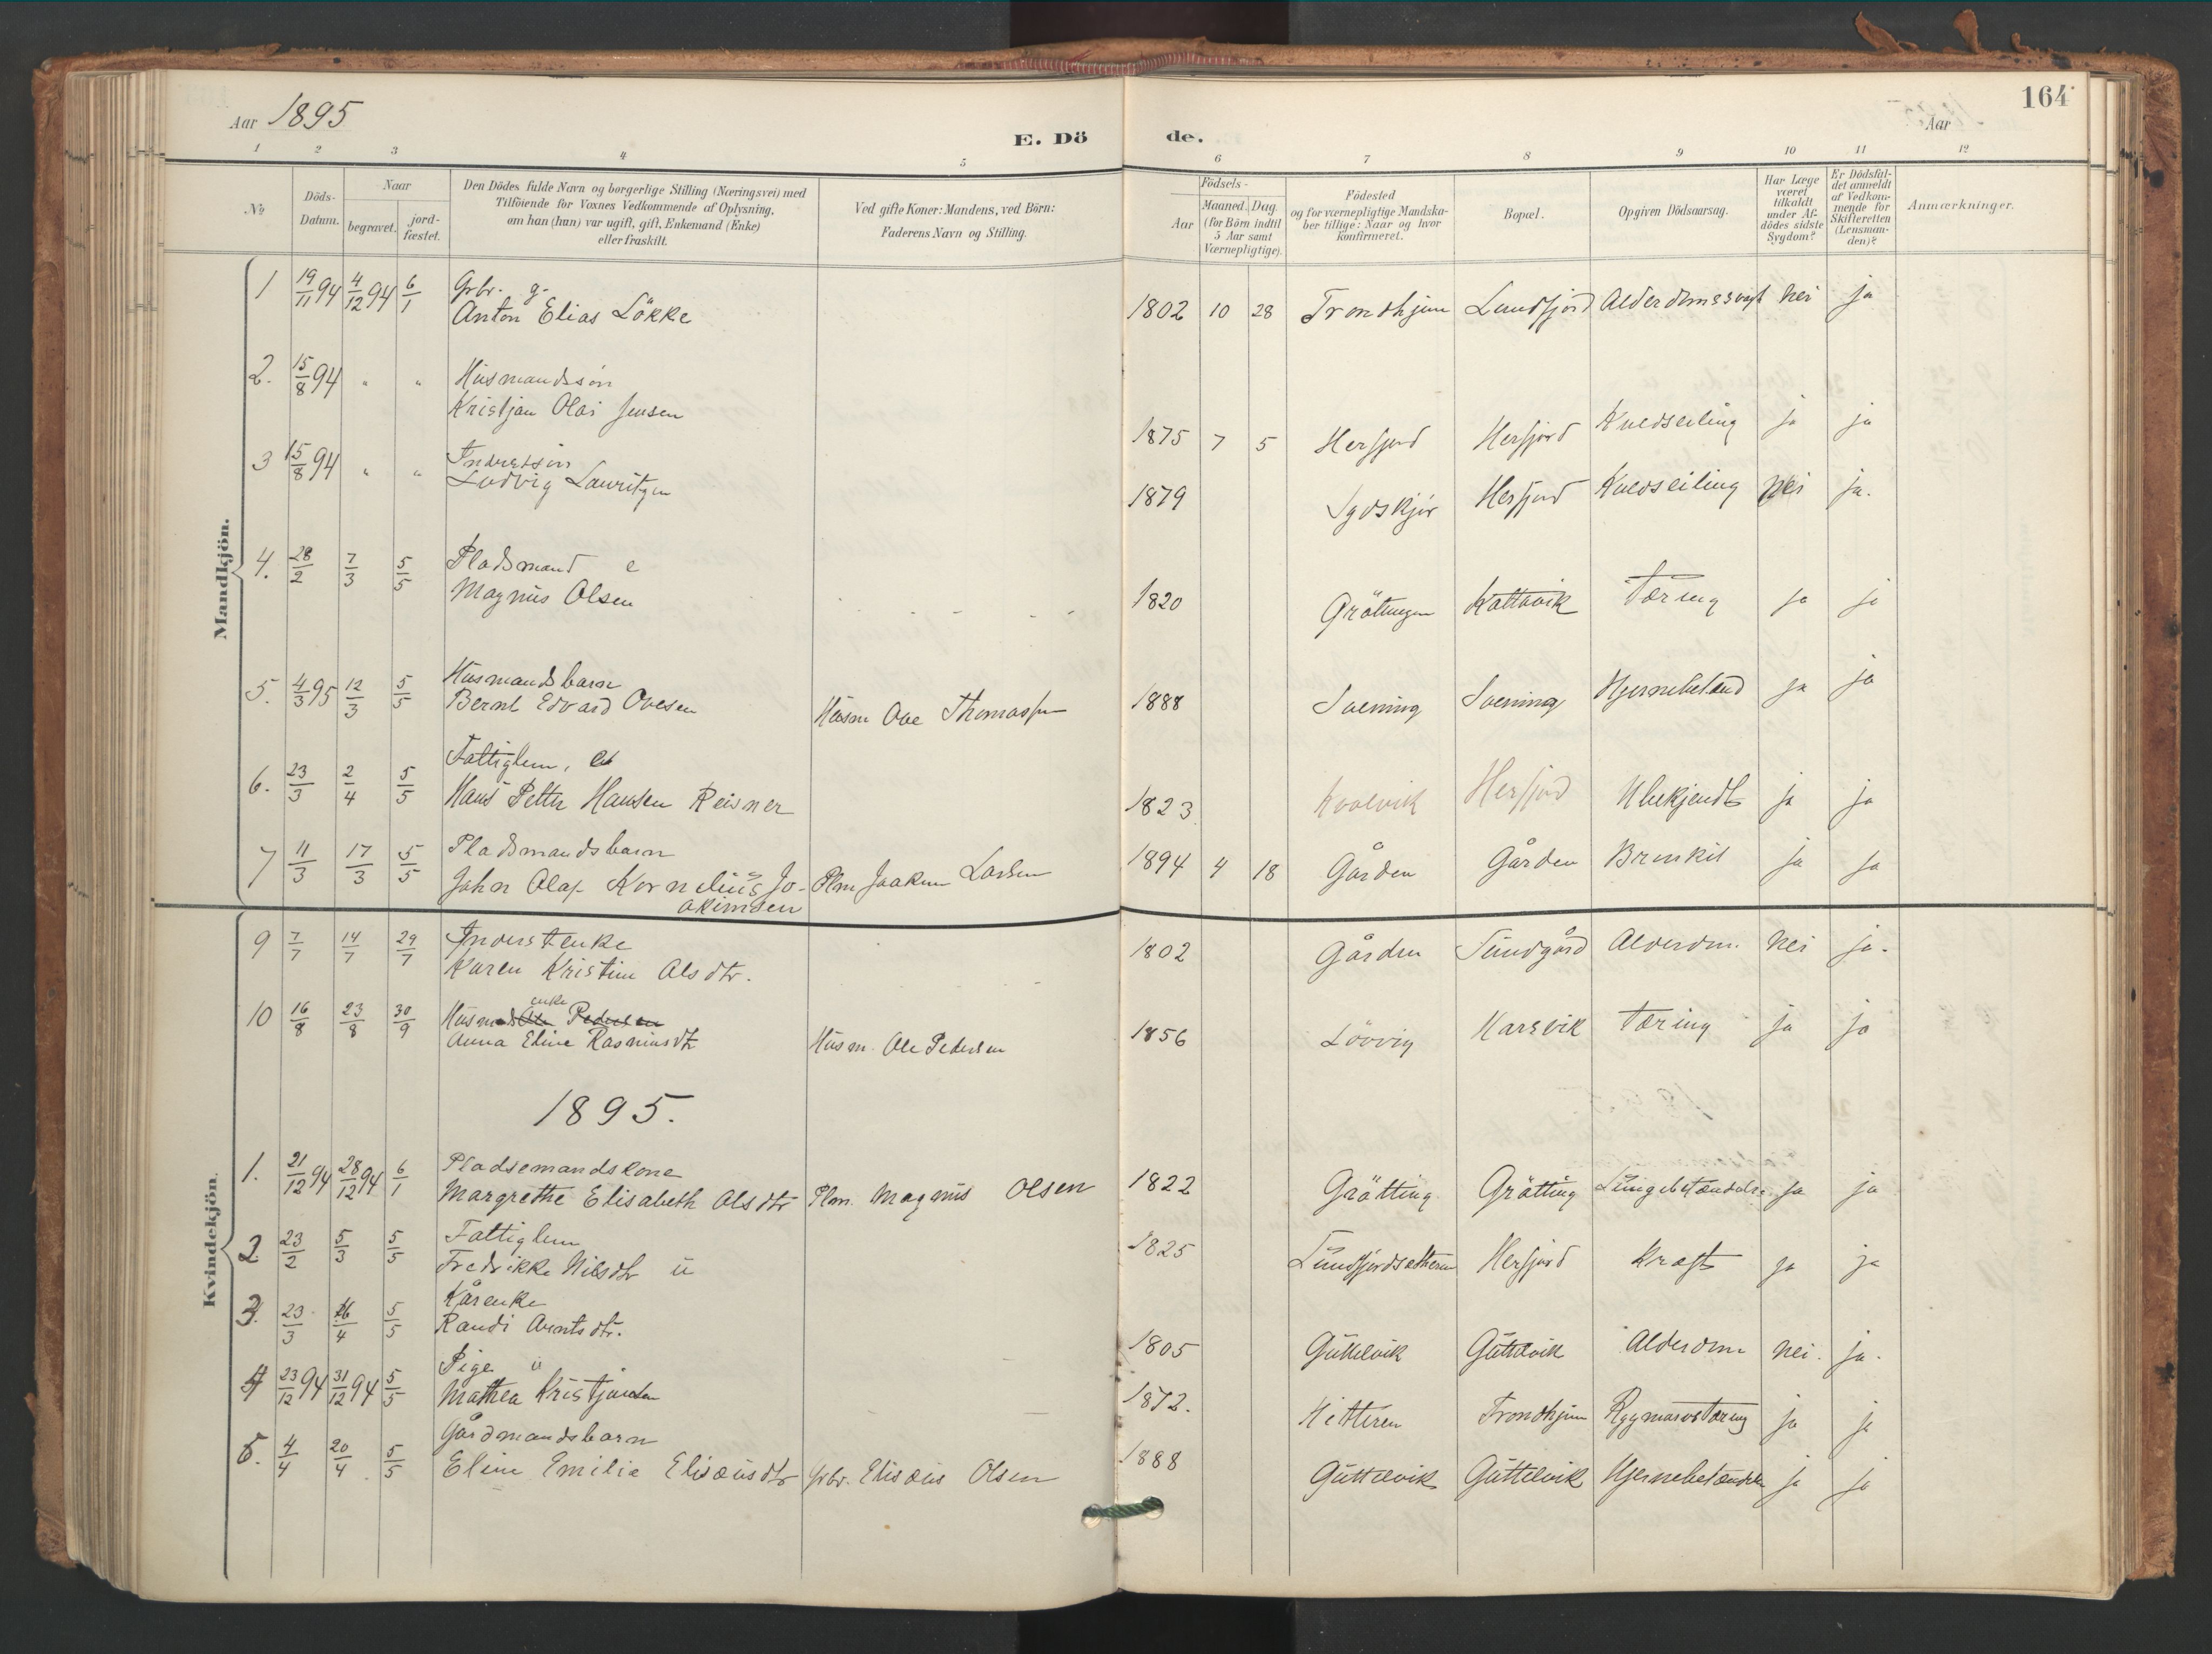 Aar 1895
E. Dö
de.
164
Aar
1 2 3 4 5 6 7 8 9 10 11 12
No
Döds-
Datum.
Naar
begravet.
jord-
fæstet.
Den Dödes fulde Navn og borgerlige Stilling (Næringsvei) med
Tilföiende for Voxnes Vedkommende af Oplysning,
om han (hun) var ugift, gift, Enkemand (Enke)
eller fraskilt.
Ved gifte Koner: Mandens, ved Börn:
Faderens Navn og Stilling.
Födsels-
Aar
Maaned. Dag.
(for Börn indtil
5 Aar samt
Værnepligtige).
Födested
og for værnepligtige Mandska-
ber tillige: Naar og hvor
konfirmeret.
Bopæl.
Opgiven Dödsaarsag.
Har Læge
været
tilkaldt
under Af-
dödes sidste
Sygdom?
Er Dödsfal-
det anmeldt
af Vedkom-
mende for
Skifteretten
(Lensman-
den)?
Anmærkninger.
Mandkjön.
1 19/11 94 4/12 94 6/1 Grbr. g.
Anton Elias Lökke 1802 10 28 Trondhjem Lundfjord nei ja
2. 15/8 94 " " Husmandssön
Kristjan Olai Jensen 1875 7 5 Herfjord Herfjord Kuldseiling ja ja
3 15/8 94 " "
Ludvig Lauritzen 1879 Herfjord Kuldseiling nei ja.
4. 28/2 7/3 5/5 Pladsmand e
Magnus Olsen 1820 Grättingen Kattavik Tæring ja ja
5. 4/3 95 12/3 5/5 Husmandsbarn
Bernt Edvard Ovesen Husm Ove Thomassen 1888 Sørning Sørning ja ja
6. 23/3 2/4 5/5 Fattiglem, e
Hans Petter Hansen Reisner 1823 Herfjord Ubekjendt ja ja
7 11/3 17/3 5/5 Pladsmandsbarn
John Olaf Kornelius Jo- Plm Joakim Larsen 1894 4 18 Gården Gården ja ja
akimsen
Kvindekjön.
9 7/7 14/7 29/7 Inderstenke
Karen Kristine Olsdtr. 1802 Gården Sundgård Alderdom. nei ja.
10 16/8 23/8 30/9 Husmandsenke Ole Pedersen
Anna Eline Rasmusdtr Husm. Ole Pedersen 1856 Lövvig Harsvik Tæring ja ja
1895.
1. 21/12 94 28/12 94 6/1 Pladsemandskone
Margrethe Elisabeth Olsdtr Plm. Magnus Olsen 1822 Grätting Grätting Lungebetændelse ja ja
2. 23/2 5/3 5/5 Fattiglem
Fredrikke Nilsdtr u 1825 Herfjord Kræft ja ja
3. 23/3 16/4 5/5 Kårenke
Randi Arntsdtr. 1805 Guttelvik Guttelvik Alderdom nei. ja.
4 23/12 94 31/12 94 5/5 Pige u
Mathea Kristjansen 1872. Hitteren Trondhjem Rygmarvstæring ja ja
5. 4/4 20/4 5/5 Gårdmandsbarn
Eline Emilie Elisæusdtr Grbr. Elisæus Olsen 1888 Guttelvik Guttelvik Hjernebetændelse ja ja